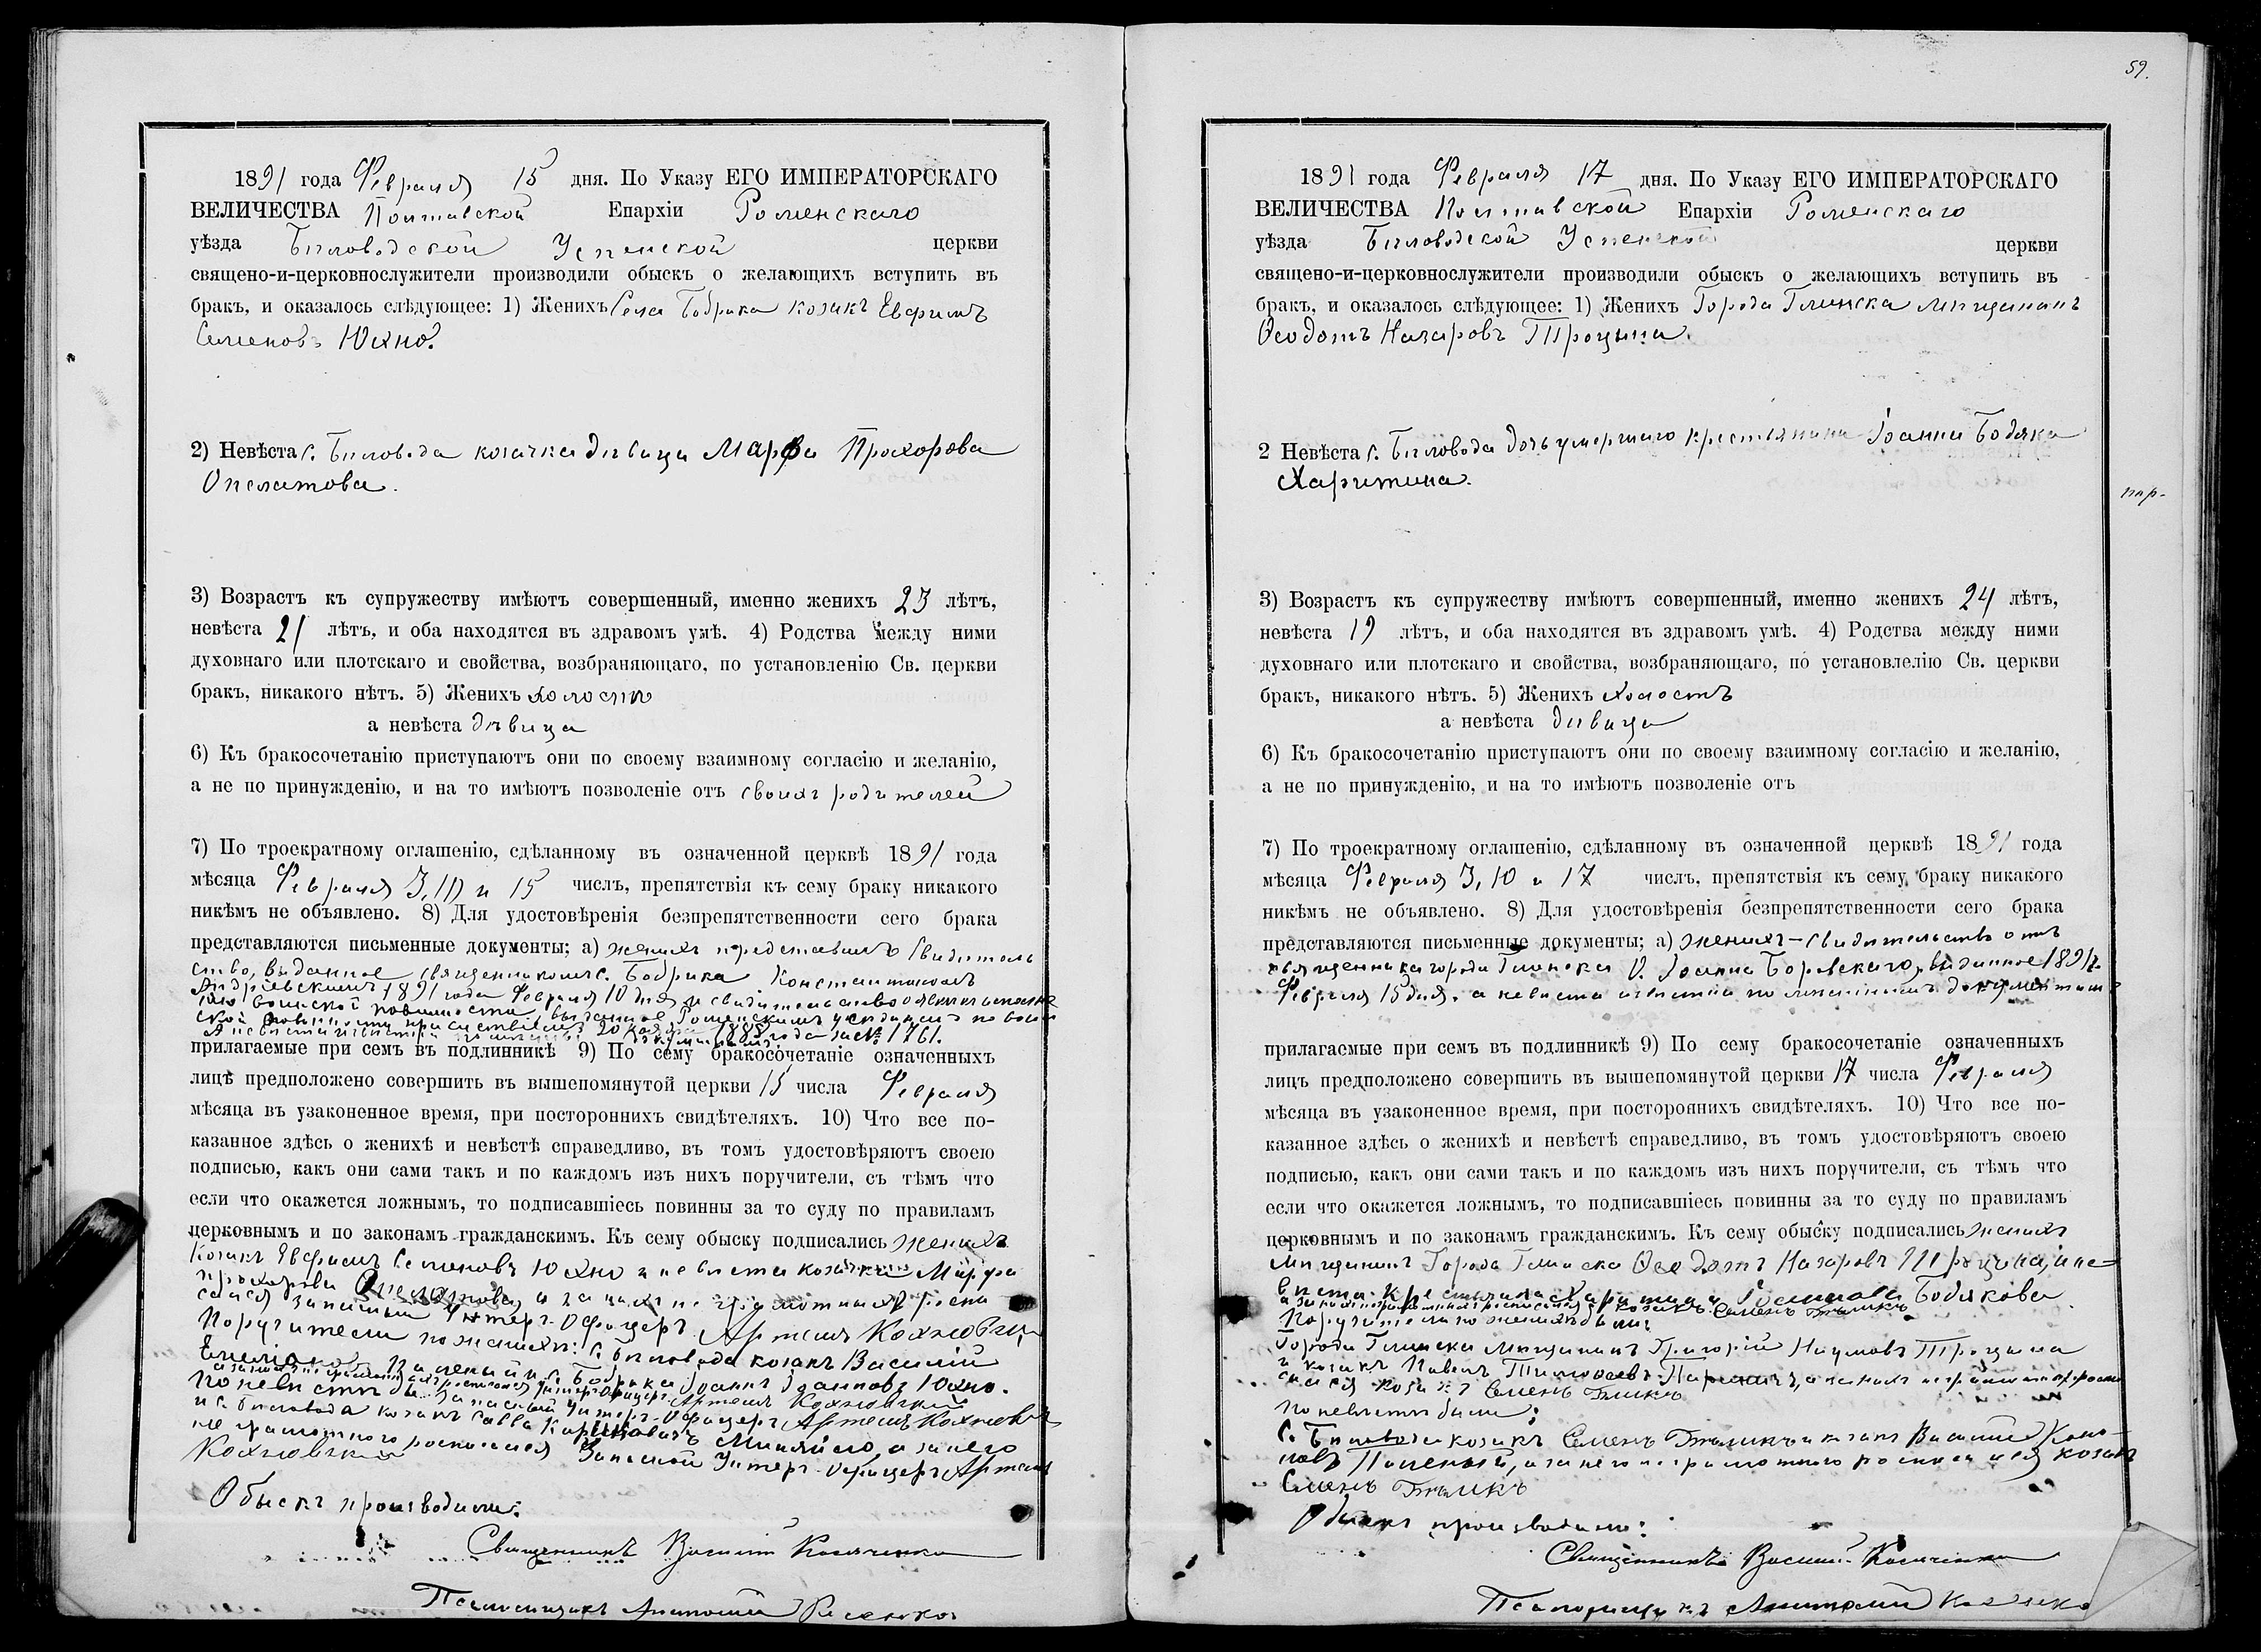 1891 года Февраля 15 дня. По Указу ЕГО ИМПЕРАТОРСКАГО
ВЕЛИЧЕСТВА Полтавской Епархіи Роменскаго
уѣзда Бѣловодской Успенской церкви
священо-и-церковнослужители производили обыскъ о желающихъ вступить въ
бракъ, и оказалось слѣдующее: 1) Женихъ Села Бобрика козакъ Евфимъ
Семеновъ Юхно.
2) Невѣста с. Бѣловода козачка дѣвица Марфа Прохорова
Опелатова.
3) Возрастъ къ супружеству имѣютъ совершенный, именно женихъ 23 лѣтъ,
невѣста 21 лѣтъ, и оба находятся въ здравомъ умѣ. 4) Родства между ними
духовнаго или плотскаго и свойства, возбраняющаго, по установленію Св. церкви
бракъ, никакого нѣтъ. 5) Женихъ холостъ
а невѣста дѣвица
6) Къ бракосочетанію приступаютъ они по своему взаимному согласію и желанію,
а не по принужденію, и на то имѣютъ позволеніе отъ своихъ родителей
7) По троекратному оглашенію, сдѣланному въ означенной церквѣ 1891 года
мѣсяца Февраля 3, 10 и 15 числъ, препятствія къ сему браку никакого
никѣмъ не объявлено. 8) Для удостовѣренія безпрепятственности сего брака
представляются письменные документы; а) женихъ представилъ Свидѣтель
ство, выданное священникомъ с. Бобрика Константиномъ
Андріевскимъ 1891 года Февраля 10 дня и свидѣтельство о явкѣ къ исполне
нію воинской повинности, выданное Роменскимъ уѣзднымъ по воин
ской повинности присутствіемъ 20 1888 года за № 1761.
А невѣста документамъ
прилагаемые при семъ въ подлинникѣ 9) По сему бракосочетаніе означенныхъ
лицъ предположено совершить въ вышепомянутой церкви 15 числа Февраля
мѣсяца въ узаконенное время, при постороннихъ свидѣтеляхъ. 10) Что все по-
казанное здѣсь о женихѣ и невѣстѣ справедливо, въ томъ удостовѣряютъ своею
подписью, какъ они сами такъ и по каждомъ изъ нихъ поручители, съ тѣмъ что
если что окажется ложнымъ, то подписавшіесь повинны за то суду по правиламъ
церковнымъ и по законамъ гражданскимъ. Къ сему обыску подписались женихъ
Козакъ Евфимъ Семеновъ Юхно и невѣста козачка Марфа
Прохорова Опелатова, а за нихъ не грамотныхъ роспи
сался запасный Унтеръ-Офицеръ Артемъ
Поручители по женихѣ: с. Бѣловода козакъ Василій
и с. Бобрика Іоаннъ Іоанновъ Юхно.
а за нихъ неграмотныхъ росписался Унтеръ-Офицеръ Артемъ
По невѣстѣ запасный Унтеръ-Офицеръ Артемъ
и с. Бѣловода козакъ Савва а за него
не грамотного росписался Запасной Унтеръ-Офицеръ Артемъ
Обыскъ производили:
Священникъ Василій Косяченко
Псаломщикъ Анатолій
59.
1891 года Февраля 17 дня. По Указу ЕГО ИМПЕРАТОРСКАГО
ВЕЛИЧЕСТВА Полтавской Епархіи Роменскаго
уѣзда Бѣловодской Успенской церкви
священо-и-церковнослужители производили обыскъ о желающихъ вступить въ
бракъ, и оказалось слѣдующее: 1) Женихъ Города Глинска мѣщанинъ
Ѳеодотъ Назаровъ Троцына.
2 Невѣста с. Бѣловода дочь умершаго крестьянина Іоанна Бодяка
Харитина.
3) Возрастъ къ супружеству имѣютъ совершенный, именно женихъ 24 лѣтъ,
невѣста 19 лѣтъ, и оба находятся въ здравомъ умѣ. 4) Родства между ними
духовнаго или плотскаго и свойства, возбраняющаго, по установлелію Св. церкви
бракъ, никакого нѣтъ. 5) Женихъ холостъ
а невѣста дѣвица
6) Къ бракосочетанію приступаютъ они по своему взаимному согласію и желанію,
а не по принужденію, и на то имѣютъ позволеніе отъ
7) По троекратному оглашенію, сдѣланному въ означенной церквѣ 1891 года
мѣсяца Февраля 3, 10 и 17 числъ, препятствія къ сему браку никакого
никѣмъ не объявлено. 8) Для удостовѣренія безпрепятственности сего брака
представляются письменные документы; а) женихъ - свидѣтельство отъ
священника города Глинска О. Іоанна Боровскаго, выданное 1891 г.
Февраля 15 дня, а невѣста извѣстна по документамъ
прилагаемые при семъ въ подлинникѣ 9) По сему бракосочетаніе означенныхъ
лицъ предположено совершить въ вышепомянутой церкви 17 числа Февраля
мѣсяца въ узаконенное время, при постороннихъ свидѣтеляхъ. 10) Что все по-
казанное здѣсь о женихѣ и невѣстѣ справедливо, въ томъ удостовѣряютъ своею
подписью, какъ они сами такъ и по каждомъ изъ нихъ поручители, съ тѣмъ что
если что окажется ложнымъ, то подписавшіесь повинны за то суду по правиламъ
церковнымъ и по законамъ гражданскимъ. Къ сему обыску подписались женихъ
Мѣщанинъ Города Глинска Ѳеодотъ Назаровъ Троцына, и не-
вѣста крестьянка Харитина Бодякова
а за нихъ неграмотныхъ росписался козакъ Семенъ
Поручители по женихѣ были:
Города Глинска Мѣщанинъ Григорій Наумовъ Троцына
и козакъ Павелъ Тимофеевъ а за нихъ неграмотныхъ роспи
сался козакъ Семенъ
По невѣстѣ были:
С. Бѣловода козакъ Семенъ и козакъ Василій Коно-
новъ а за него неграмотного росписался козакъ
Семенъ
Обыскъ производили:
Священникъ Василій Косяченко
Псаломщикъ Анатолій